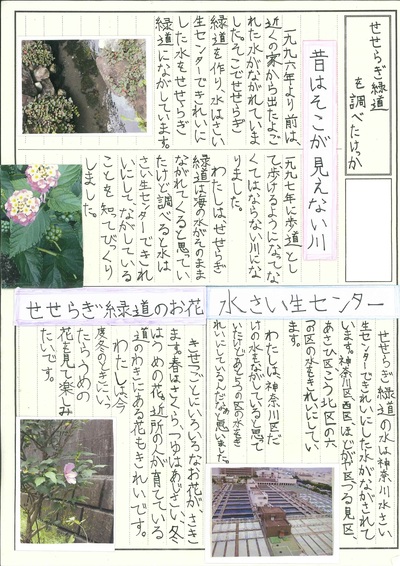 せせらぎ緑道
を調べたけっか
昔はそこが見えない川
一九九六年より前は、
近くの家から出たよご
れた水がながれていま
した。そこでせせらぎ
緑道を作り、水はさい
生センターできれいに
した水をせせらぎ
緑道にながしています。
一九九七年に歩道とし
て歩けるようになってな
くてはならない川にな
りました。
わたしは、せせらぎ
緑道は海の水がそのまま
ながれてくると思ってい
たけど調べると水は
さい生センターできれ
いにしてながしている
ことを知ってびっくり
しました。
水さい生センター
せせらぎ緑道の水は神奈川水さい
生センターできれいにした水がながされて
います。神奈川区西区ほどがや区つる見区、
あさひ区こう北区の六
つの区の水をきれいにしてい
ます。
わたしは、神奈川区だ
けの水をながしていると思って
いたけどあと五つの区の水をき
れいにしているんだなぁと思いました。
せせらぎ緑道のお花
きせつごとにいろいろなお花がさき
ます。春はさくら、つゆはあじさい、冬
はつめの花、近所の人が育てている
道のわきにある花もきれいです。
わたしは、今
度冬のときにいっ
たらうめの
花を見て楽しみ
たいです。